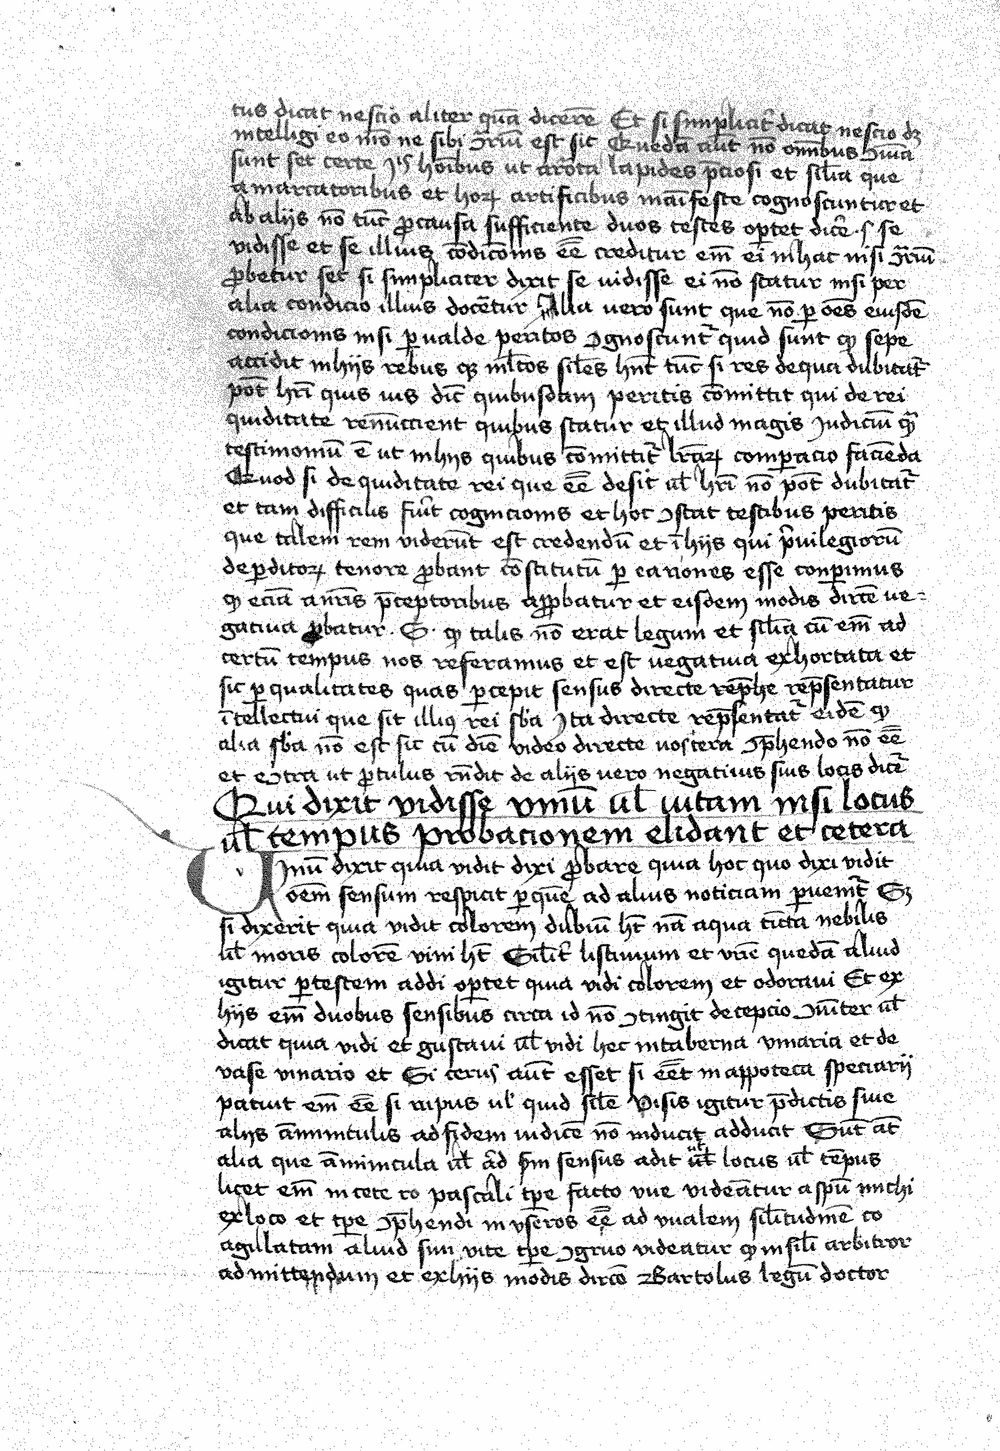 tus dicat nescio aliter quā dicere Et si simplicit dicat nescio
intelligi eo mō ne sibi ꝯr̄iū est sic Quedā aūt nō omnibus
sunt set certe hoībus ut arōta lapides p̄ciosi et sil̄ia que
a marcatoribus et horꝝ artificibus maīfeste cognoscuntur et
ab aliis nō tūc ꝓ causa sufficiente duos testes optet dic̄e .s. se
vidisse et se illius ꝯdicōnis eē creditur em̄ ei in hac nisi ꝯr̄iū
ꝓbetur set si simpliciter dixit se vidisse ei nō statur nisi per
alia condicio illius docētur Alia vero sunt que nō ꝑ oēs eiusdē
condicionis nisi ꝑ valde peritos ꝯgnoscunt̄ quid sunt qͦ sepe
accidit in hiis rebus que ml̄tos sil̄es hn̄t tūc si res de qua dubitat̄
pōt hr̄i quis ius dic̄ quibusdam peritis cōmittit qui de rei
quiditate renūccient quibus statur et illud magis iudiciū quā
testimoniū ē ut in hiis quibus cōmittit̄ lr̄arꝝ comparacio faciēda
Quod si de quiditate rei que eē desit ul̄ hr̄i nō pōt dubitat̄
et tam difficilis fuīt cognicionis et hoc ꝯstat testibus peritis
que talem rem viderūt est credendū et ī hiis qui pͥuilegiorū
de ꝑditorꝝ tenore ꝓbant cōstitutū ꝑ eaciones esse conperimus
qͦ eciā a nr̄is p̄ceptoribus apꝓbatur et eisdem modis dirc̄e ne-
gatiua ꝓbatur .S. qͦ talis nō erat legum et sil̄ia cū em̄ ad
certū tempus nos referamus et est negatiua exhortata et
sic ꝑ qualitates quas ꝑcepit sensus directe rep̄he rep̄sentatur
ītellectui que sit illiꝰ rei sb̄a Ita directe rep̄sentat̄ eidē qͦ
alia sb̄a nō est sic cū diē video directe noscera ꝯp̄hendo nō eē
et ꝯtra ut ꝓtulus rn̄dit de aliis vero negatiuis suis locis dicet̄
Qui dixit vidisse vinū ul̄ uitam nisi locus
ul̄ tempus probacionem elidant et cetera
Vinū dixit quia vidit dixi ꝓbare quia hoc quo dixi vidit
oem̄ sensum respicit ꝑ quē ad alius noticiam ꝑuenit̄ Sꝫ
si dixerit quia vidit colorem dubiū hēt nā aqua tīcta nebilis
ul̄ moris colorē vini hēt Sil̄it̄ listimum et vr̄ie quedā aliud
igitur ꝑ testem addi optet quia vidi colorem et odoraui Et ex
hiis em̄ duobus sensibus circa id nō ꝯtingit decepcio ul̄
dicat quia vidi et gustaui ul̄ vidi hec in taberna vinaria et de
vase vinario et Si cerius aūt esset si eēt in appoteca speciarij
patiut em̄ eē si rapus ul̄ quid sil̄e Visis igitur p̄dictis siue
aliis āminiculis ad fidem iudicē nō inducit adducit Sūt āt
alia que āminicula ul̄ ad sensus adit ut̄ locus ul̄ tēpus
licet em̄ in cete ro pascali tpe facto vue videātur aspū michi
ex loco et tpe ꝯp̄hendi in vseros eē ad vualem sil̄itudinē co
agulatam aliud sun vite tpe ꝯgruo videatur qͦ in sil̄i arbitror
admittendum et ex hiis modis dircō Bartolus legū doctor